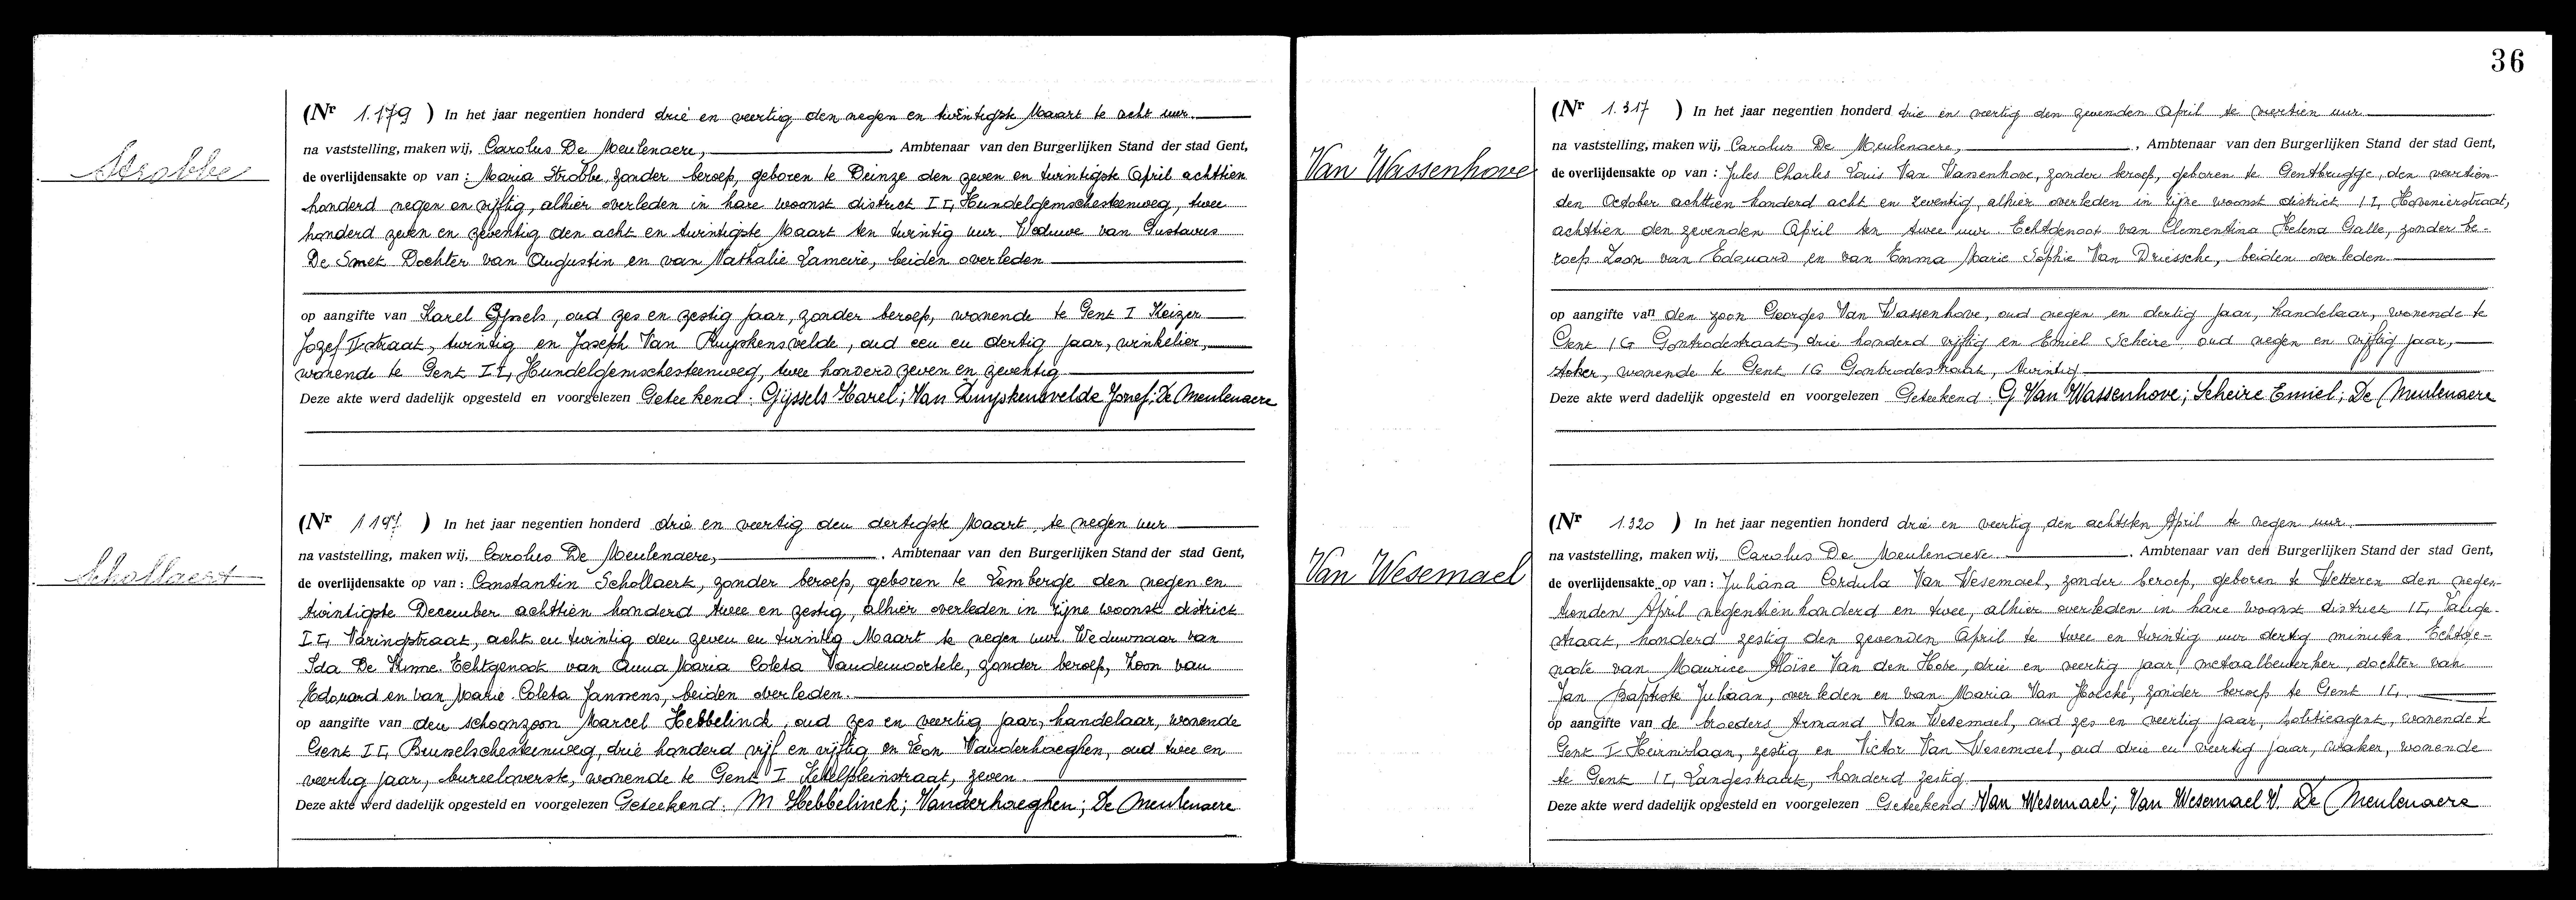 Strobbe
(Nr 1.179 ) In het jaar negentien honderd drie en veertig den negen en twintigste Maart te acht uur.
na vaststelling, maken wij, Carolus De Meulenaere, , Ambtenaar van den Burgerlijken Stand der stad Gent,
de overlijdensakte op van : Maria Strobbe, zonder beroep, geboren te Deinze den zeven en twintigste April achttien
honderd negen en vijftig, alhier overleden in hare woonst district II, Hundelgemschesteenweg, twee
honderd zeven en zeventig den acht en twintigste Maart ten twintig uur. Weduwe van Gustavus
De Smet. Dochter van Augustin en van Nathalie Lameire, beiden overleden
op aangifte van Karel Gijssels, oud zes en zestig jaar, zonder beroep, wonende te Gent I Keizer
Jozef II straat, twintig en Joseph Van Kuyskensvelde, oud een en dertig jaar, winkelier,
wonende te Gent II, Hundelgemschesteenweg, twee honderd zeven en zeventig
Deze akte werd dadelijk opgesteld en voorgelezen Geteekend: Gijssels Karel; Van Kuyskensvelde Josef; De Meulenaere
Schollaert
(Nr 1197 ) In het jaar negentien honderd drie en veertig den dertigste Maart te negen uur
na vaststelling, maken wij, Carolus De Meulenaere, , Ambtenaar van den Burgerlijken Stand der stad Gent,
de overlijdensakte op van : Constantin Schollaert, zonder beroep, geboren te Lemberge den negen en
twintigste December achttien honderd twee en zestig, alhier overleden in zijne woonst district
II, Varingstraat, acht en twintig den zeven en twintig Maart te negen uur. Weduwnaar van
Ida De Himne. Echtgenoot van Anna Maria Coleta Vandewoortele, zonder beroep, Zoon van
Edouard en van Marie Coleta Janssens, beiden overleden.
op aangifte van den schoonzoon Marcel Hebbelinck, oud zes en veertig jaar, handelaar, wonende
Gent II, Brusselschesteenweg, drie honderd vijf en vijftig en Leon Vanderhaeghen, oud twee en
veertig jaar, bureeloverste, wonende te Gent I Ketelpleinstraat, zeven.
Deze akte werd dadelijk opgesteld en voorgelezen Geteekend: M Hebbelinck; Vanderhaeghen; De Meulenaere
36
Van Wassenhove
(Nr 1.317 ) In het jaar negentien honderd drie en veertig den zevenden April te veertien uur
na vaststelling, maken wij, Carolus De Meulenaere, , Ambtenaar van den Burgerlijken Stand der stad Gent,
de overlijdensakte op van : Jules Charles Louis Van Wassenhove, zonder beroep, geboren te Gentbrugge, den veertien
den October achttien honderd acht en zeventig, alhier overleden in zijne woonst district II, Hovenierstraat,
achttien den zevenden April ten twee uur. Echtgenoot van Clementina Helena Galle, zonder be-
roep Zoon van Edouard en van Emma Marie Sophie Van Driessche, beiden overleden
op aangifte van den zoon Georges Van Wassenhove, oud negen en dertig jaar, handelaar, wonende te
Gent IG Gontrodestraat, drie honderd vijftig en Emiel Scheire oud negen en vijftig jaar,
stoker, wonende te Gent IG Gontrodestraat, twintig
Deze akte werd dadelijk opgesteld en voorgelezen Geteekend: G Van Wassenhove; Scheire Emiel; De Meulenaere
Van Wesemael
(Nr 1.320 ) In het jaar negentien honderd drie en veertig den achtsten April te negen uur.
na vaststelling, maken wij, Carolus De Meulenaere , Ambtenaar van den Burgerlijken Stand der stad Gent,
de overlijdensakte op van : Juliana Cordula Van Wesemael, zonder beroep, geboren te Wetteren den negen-
tienden April negentien honderd en twee, alhier overleden in hare woonst district II, Lange-
straat, honderd zestig den zevenden April te twee en twintig uur dertig minuten. Echtge-
noote van Maurice Aloïse Van den Hove, drie en veertig jaar, metaalbewerker, dochter van
Jan Baptiste Juliaan, overleden en van Maria Van Holcke, zonder beroep te Gent II,
op aangifte van de broeders Armand Van Wesemael, oud zes en veertig jaar, politieagent, wonende t
Gent I Heirnislaan, zestig en Victor Van Wesemael, oud drie en veertig jaar, waker, wonende
te Gent II, Langestraat, honderd zestig
Deze akte werd dadelijk opgesteld en voorgelezen Geteekend Van Wesemael; Van Wesemael V. De Meulenaere